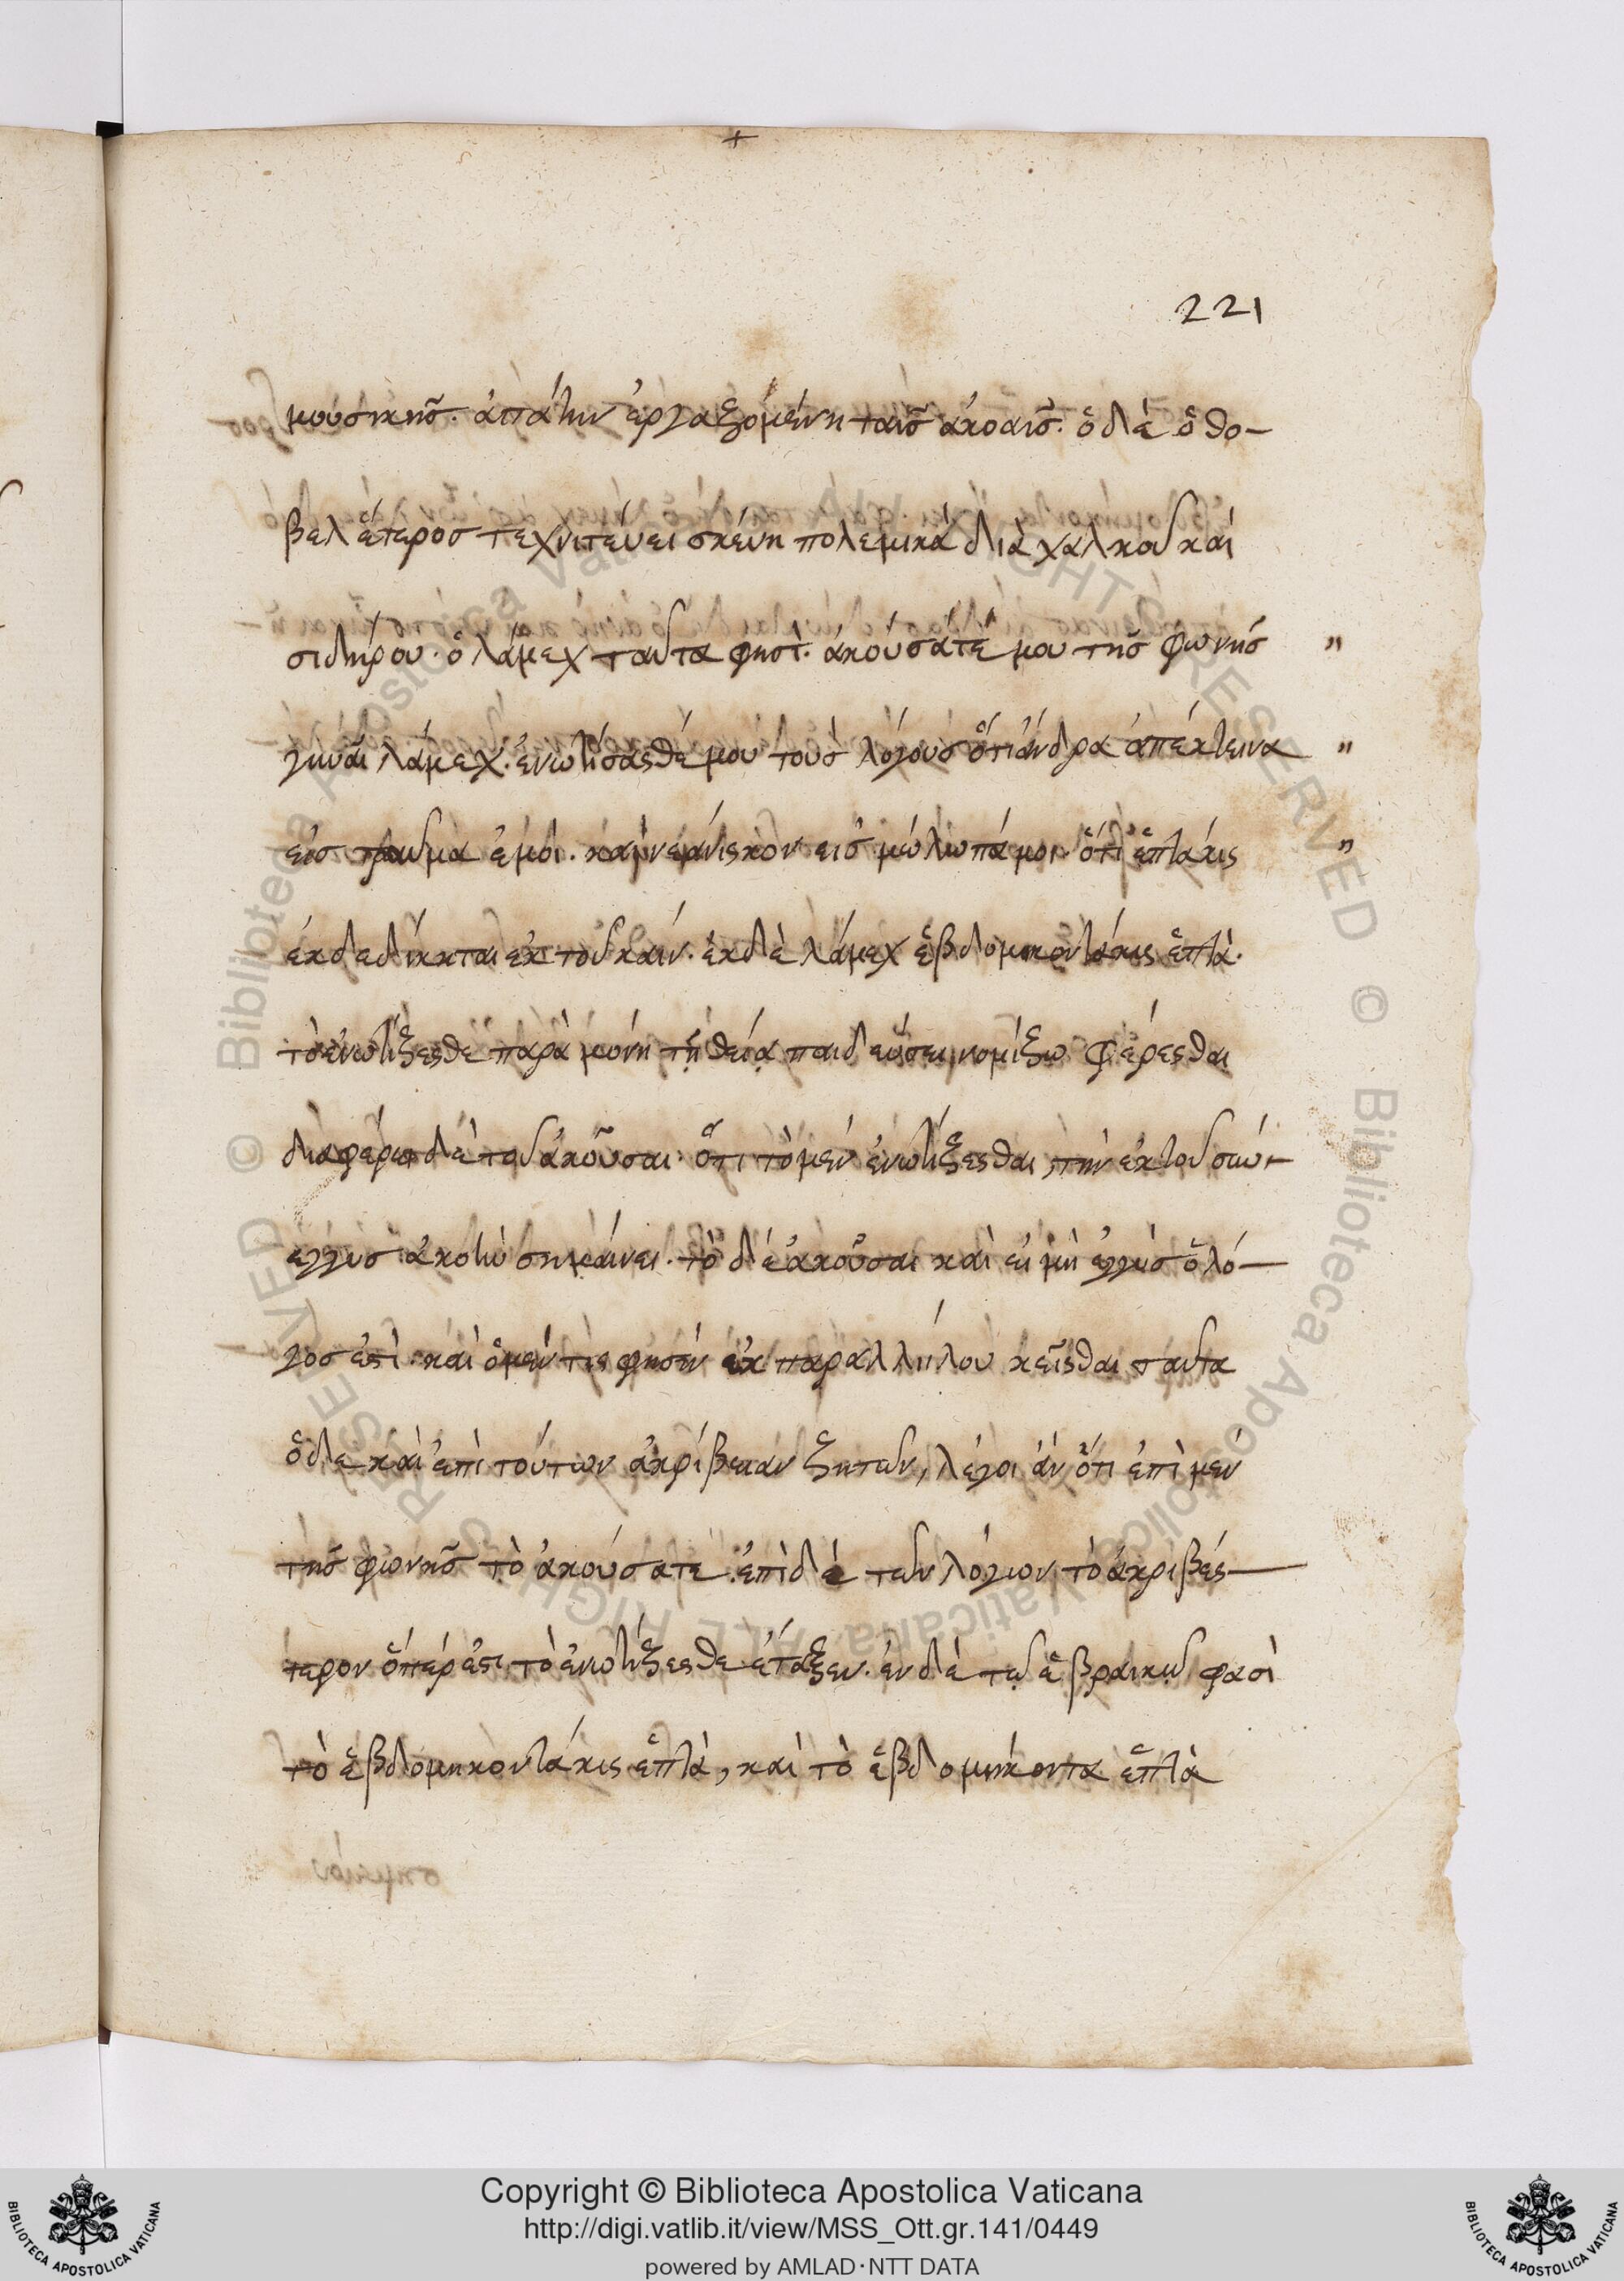 221
μουσικῆς. ἀπάτην ἐργαζομένη ταῖς ἀκοαῖς. ὁ δὲ ὁ θο-
βελ ἕτερος τεχνιτεύει σκεύη πολεμικὰ διὰ χαλκοῦ καὶ
σιδήρου. ὁ λάμεχ ταῦτα φησί. ἀκούσατέ μου τῆς φωνῆς "
γυναῖ λάμεχ. ἐνωτίσασθέ μου τοὺς λόγους ὅτι ἄνδρα ἀπέκτεινα "
εἰς τραῦμα ἐμοί. καὶ νεανίσκον εἰς μώλωπά μοι. ὅτι ἑπτάκις "
ἐκδεδίκηται ἐκ τοῦ καιν. ἐκ δὲ λάμεχ ἑβδομηκοντάκις ἑπτά.
τὸ ἐνωτίζεσθε παρὰ μόνη τῇ θείᾳ παιδεύσει νομίζω φέρεσθαι
διαφέρει δὲ τοῦ ἀκοῦσαι. ὅτι τὸ μὲν ἐνωτίζεσθαι, τὴν ἐκ τοῦ σύν-
εγγυς ἀκοὴν σημαίνει. τὸ δὲ ἀκοῦσαι καὶ εἰ μὴ ἐγγὺς ὁ λό-
γος ἐστὶ. καὶ ὁ μέν τις φησὶν ἐκ παραλλήλου κεῖσθαι ταῦτα
ὁ δὲ καὶ ἐπὶ τούτων ἀκρίβειαν ζητῶν, λέγοι ἂν ὅτι ἐπὶ μὲν
τῆς φωνῆς τὸ ἀκούσατε. ἐπὶ δὲ τῶν λόγων τὸ ἀκριβέσ-
τερον ὅπερ ἐστι τὸ ἐνωτίζεσθε ἔταξεν. ἐν δὲ τῷ ἑβραικῷ φασὶ
τὸ ἑβδομηκοντάκις ἑπτὰ, καὶ τὸ ἑβδομήκοντα ἑπτὰ
Copyright © Biblioteca Apostolica Vaticana
http://digi.vatlib.it/view/MSS_Ott.gr.141/0449
powered by AMLAD·NTT DATA